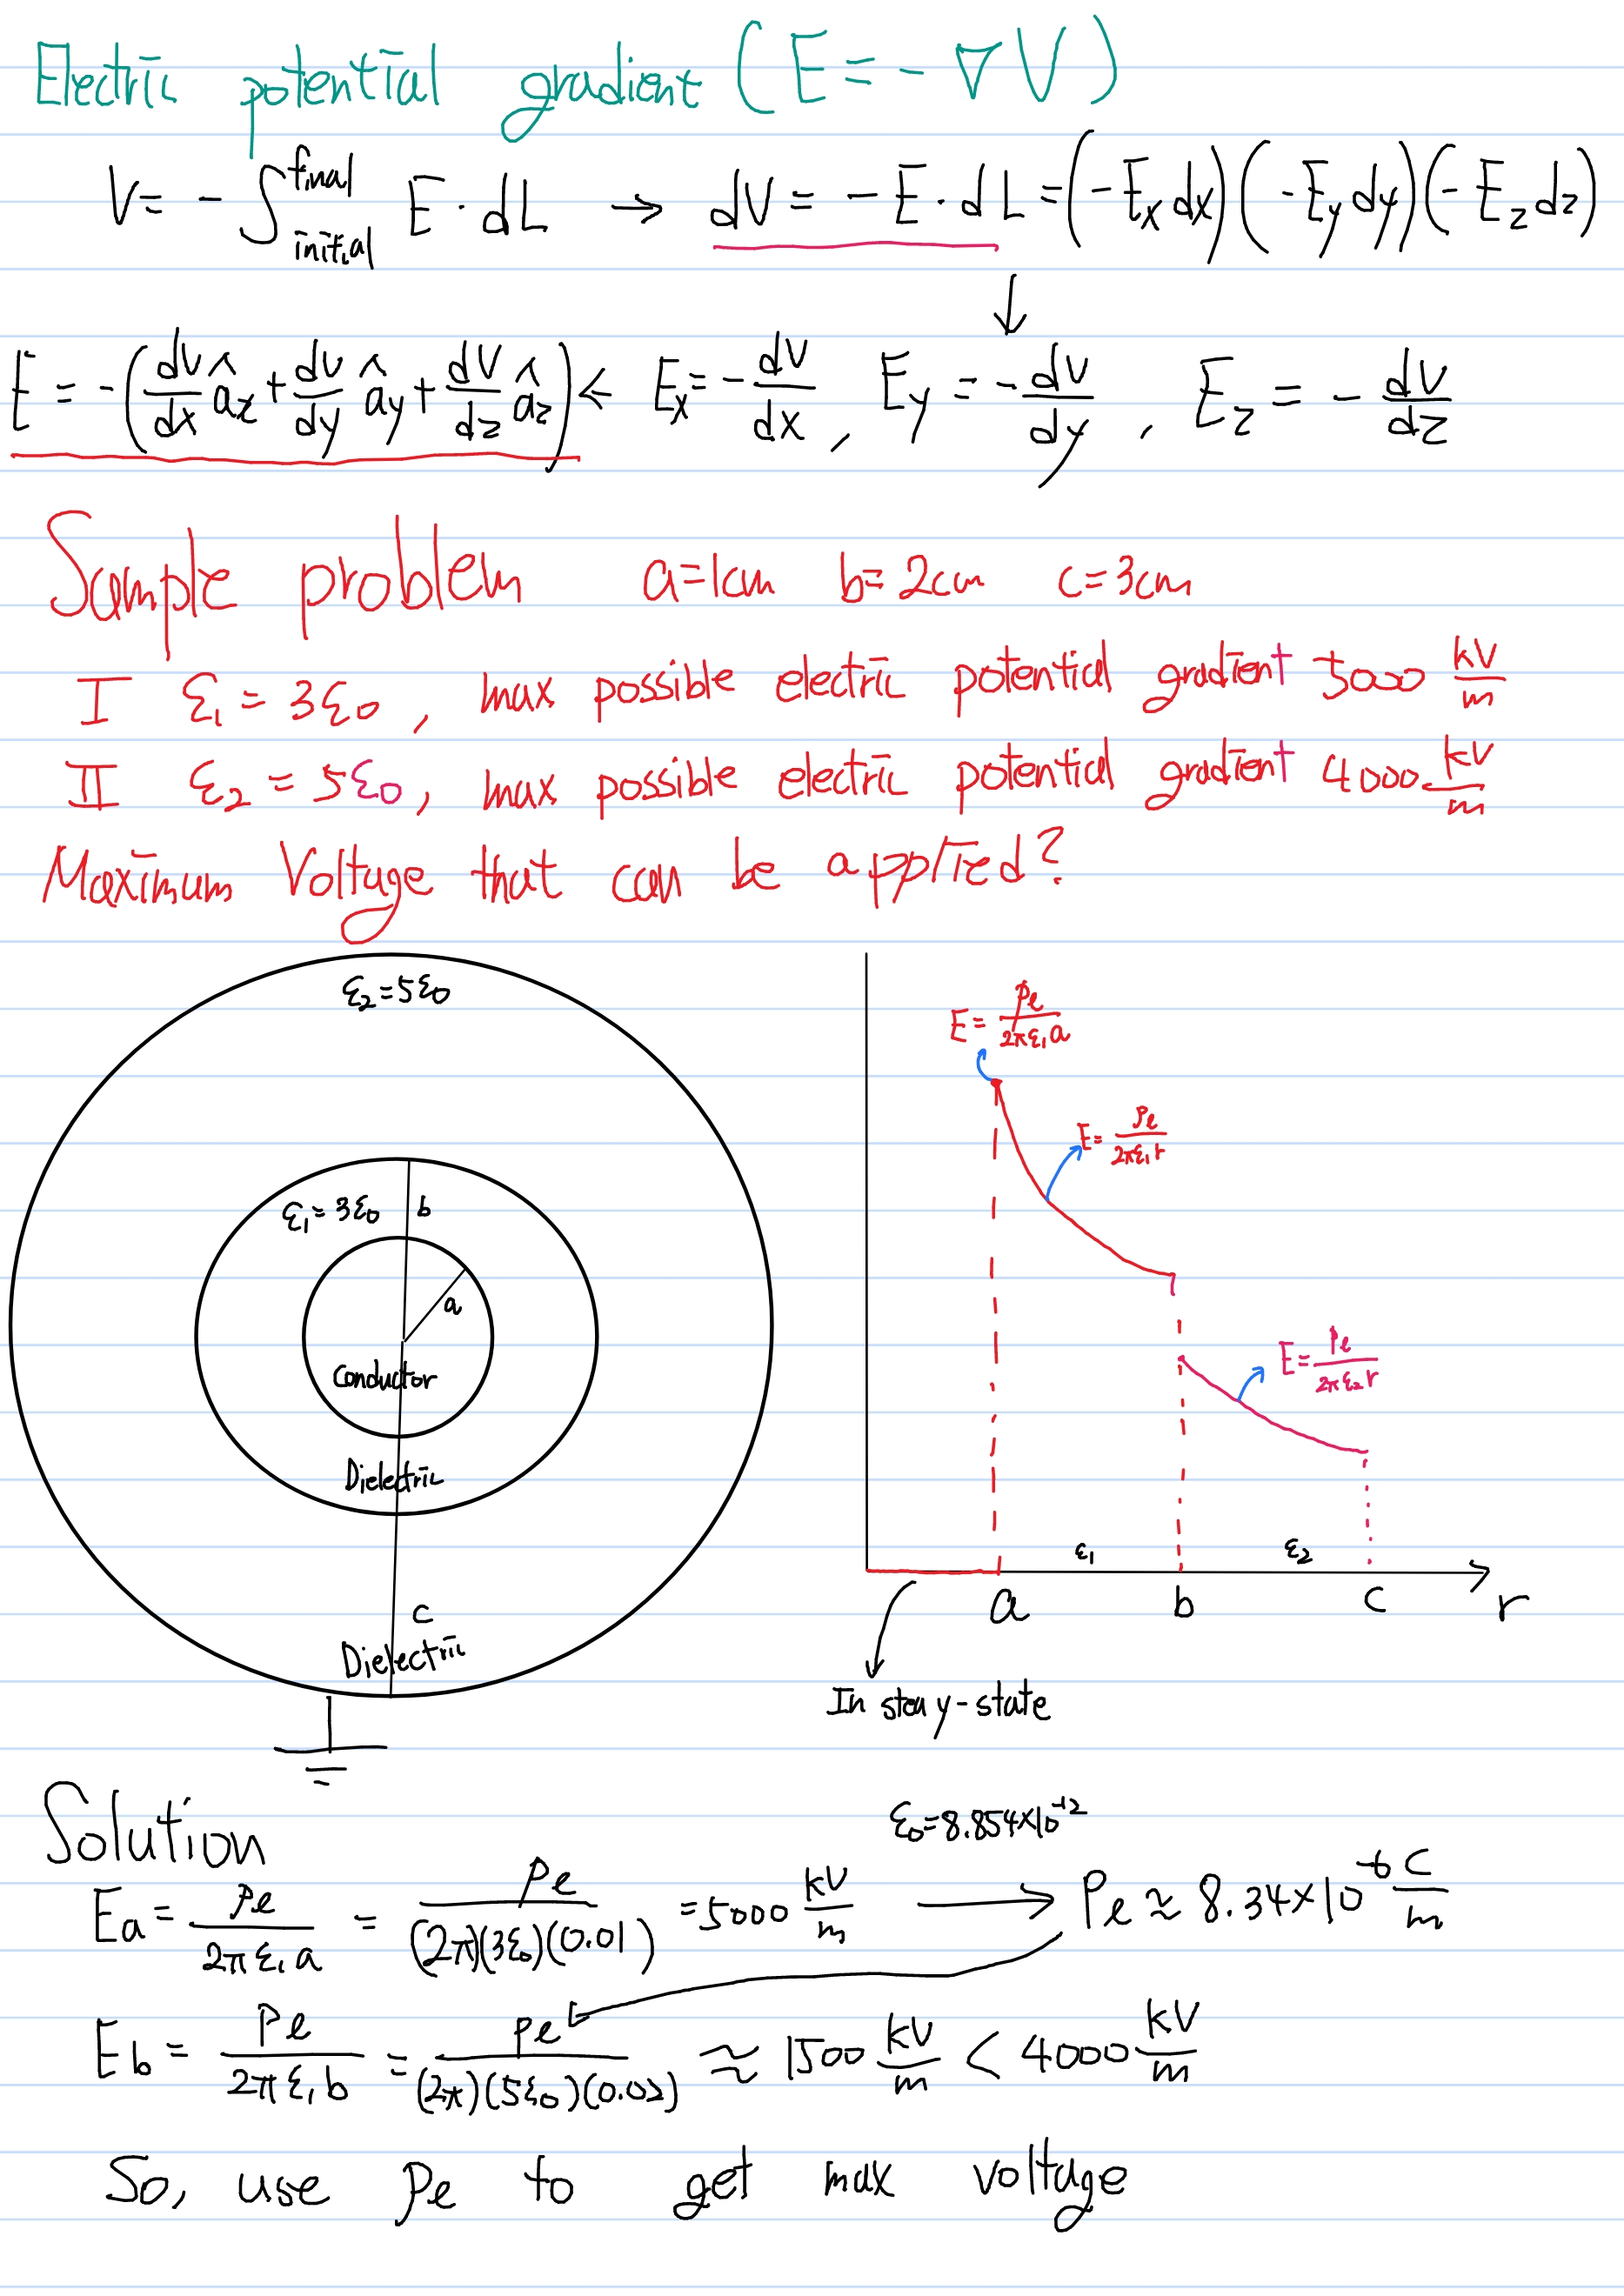 Electric potential gradient (E = - ∇V)
V = - ∫ final initial E · dL → dV = - E · dL = (-Ex dx)(-Ey dy)(-Ez dz)
↓
E = -(dV/dx âx + dV/dy ây + dV/dz âz) ← Ex = - dV/dx , Ey = - dV/dy , Ez = - dV/dz
Sample problem a=1cm b=2cm c=3cm
I ε1 = 3ε0, max possible electric potential gradient 5000 kV/m
II ε2 = 5ε0, max possible electric potential gradient 4000 kV/m
Maximum Voltage that can be applied?
ε2=5ε0
ε1=3ε0
b
a
Conductor
Dielectric
c
Dielectric
E = ρℓ/2πε1a
E = ρℓ/2πε1r
E = ρℓ/2πε2r
ε1 ε2
a b c r
In steay-state
Solution
ε0=8.854×10^-12
Ea = ρℓ/2πε1a = ρℓ/(2π)(3ε0)(0.01) = 5000 kV/m → ρℓ ≈ 8.34×10^-6 C/m
Eb = ρℓ/2πε1b = ρℓ/(2π)(5ε0)(0.02) ≈ 1500 kV/m < 4000 kV/m
So, use ρℓ to get max voltage